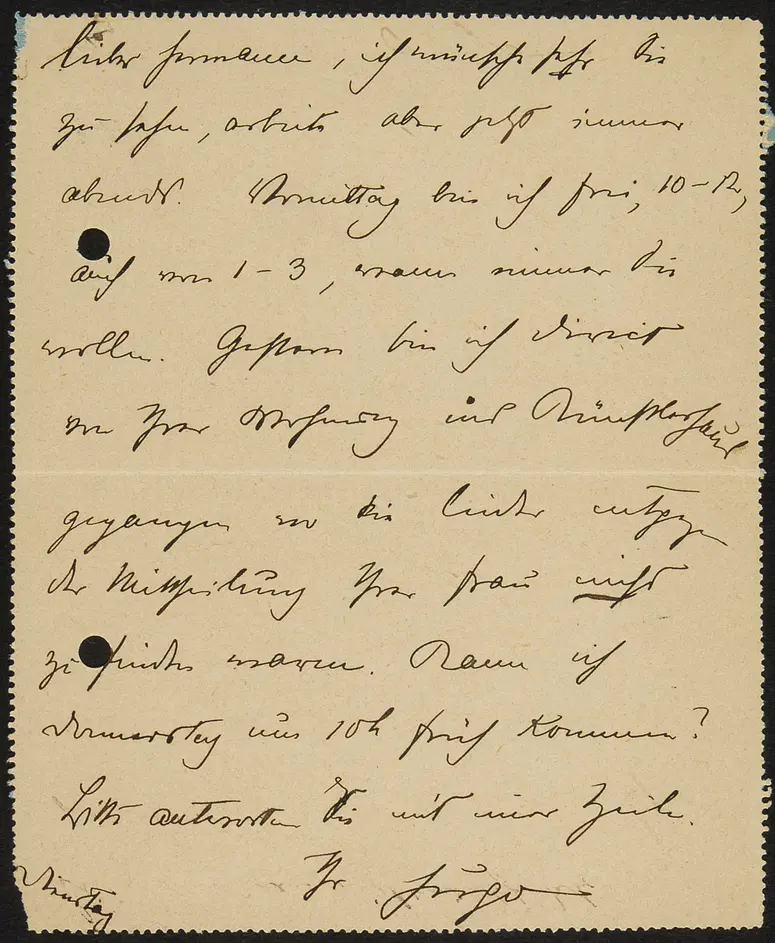 lieber Hermann, ich wünsche sehr Sie
zu sehn, arbeite aber jetzt immer
abends. Vormittag bin ich frei, 10–12,
auch von 1–3, wann immer Sie
wollen. Gestern bin ich direct
von Ihrer Wohnung ins Künstlerhaus
gegangen wo Sie leider entgegen
der Mittheilung Ihrer Frau nicht
zu finden waren. Kann ich
Donnerstag um 10h früh kommen?
Bitte antworten Sie mit einer Zeile.
Ihr Hugo
Dienstag